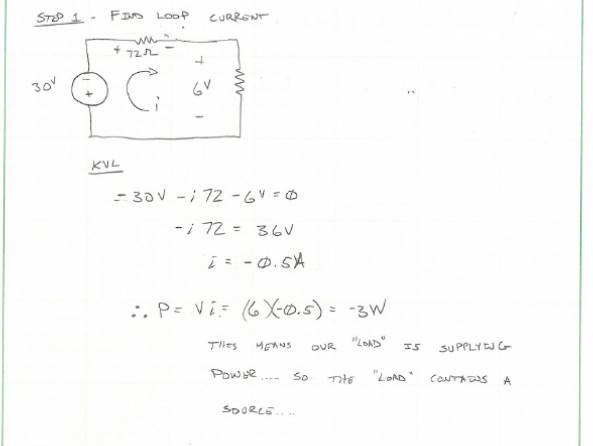 STEP 1 - FIND LOOP CURRENT
+ 72Ω -
30V
-
+
i
+
6V
-
KVL
-30V - i72 - 6V = 0
-i72 = 36V
i = -0.5A
∴ P = Vi = (6)(-0.5) = -3W
THIS MEANS OUR "LOAD" IS SUPPLYING
POWER.... SO THE "LOAD" CONTAINS A
SOURCE....